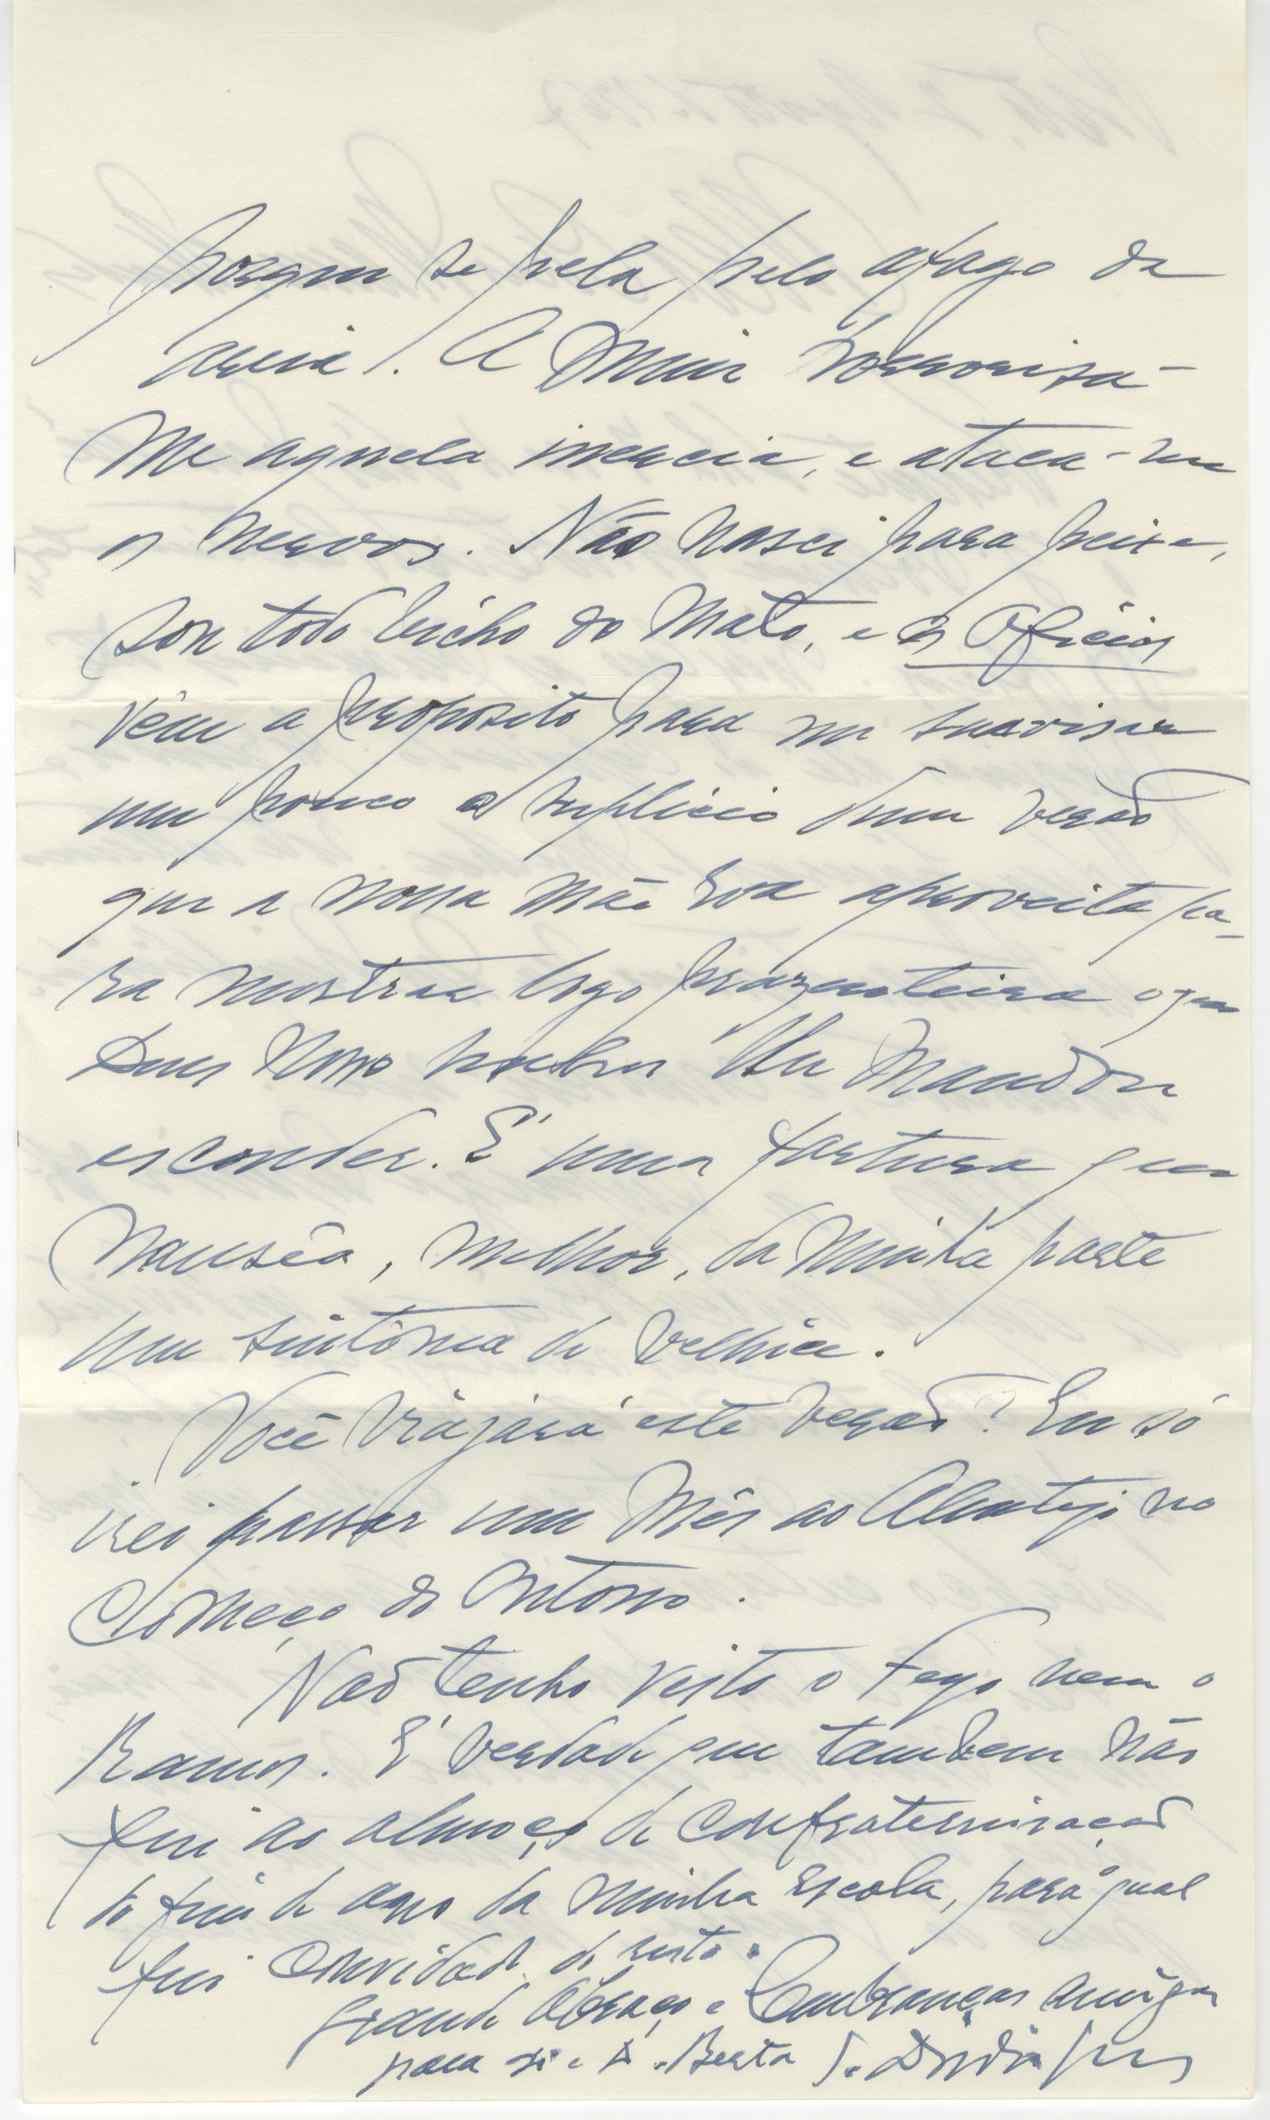 porque se pela pelo afago da
areia. A mim horrorisa-
me aquela inercia, e ataca-me
os nervos. Não nasci para peixe,
sou todo bicho do mato, e os Ofícios
vêm a proposito para me suavisar
um pouco o suplicio dum verão
que a nossa mãe Eva aproveita pa-
ra mostrar logo prazenteira o que
Deus Nosso Senhor lhe mandou
esconder. É uma fartura que
nausêa, melhor, da minha parte
um sintôma de velhice.
Você viajará este verão? Eu só
irei passar um mês ao Alentejo no
começo do Outono.
Não tenho visto o Fego nem o
Ramos. É verdade que tambem não
fui ao almoço de confraternisação
do fim de ano da minha escola, para o qual
fui convidado de resto.
Grande abraço e lembranças amigas
para si e D. Berta